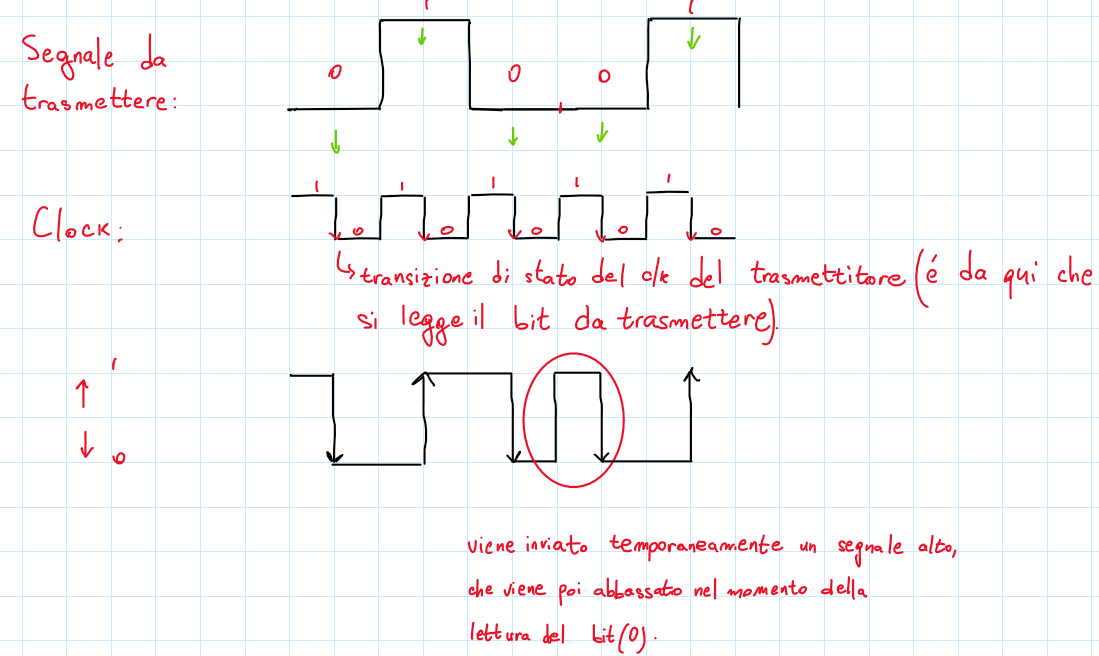 1 1
Segnale da
trasmettere:
0 0 0
1 1 1 1 1
Clock:
0 0 0 0 0
transizione di stato del clk del trasmettitore (é da qui che
si legge il bit da trasmettere).
1
0
viene inviato temporaneamente un segnale alto,
che viene poi abbassato nel momento della
lettura del bit (0).